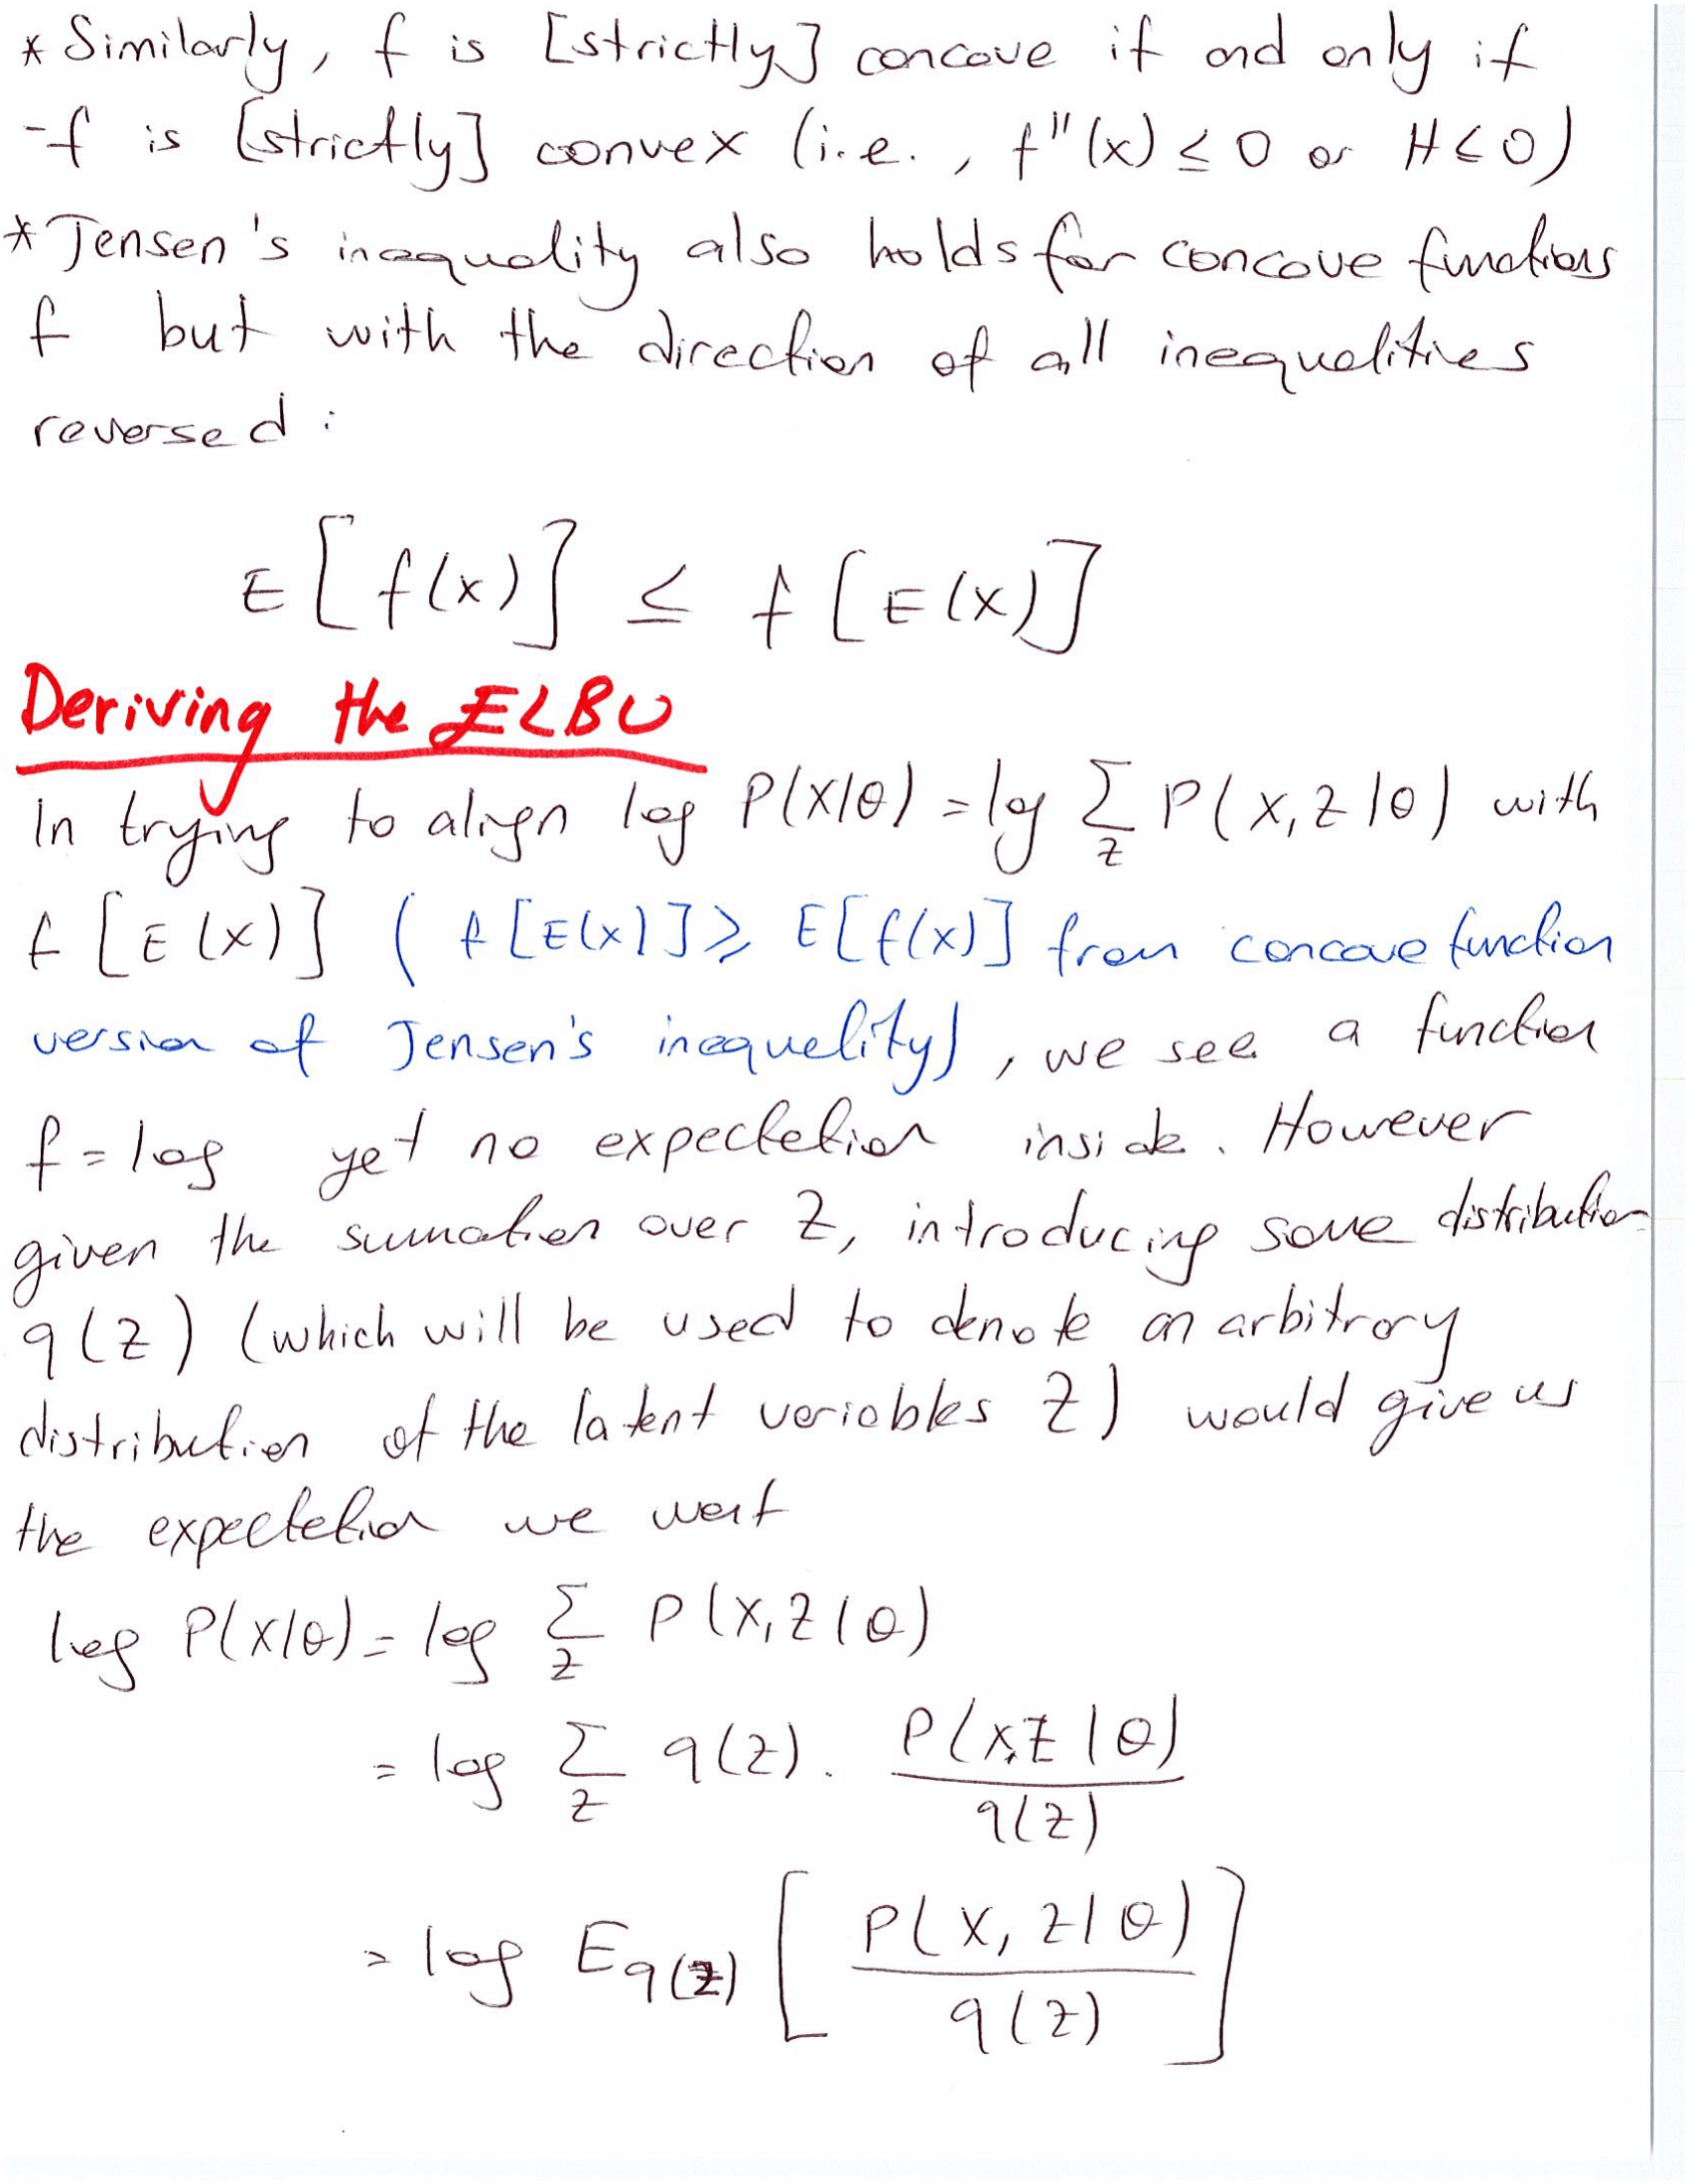 * Similarly, f is [strictly] concave if and only if
-f is [strictly] convex (i.e., f''(x) ≤ 0 or H ≤ 0)
* Jensen's inequality also holds for concave functions
f but with the direction of all inequalities
reversed:
E[f(x)] ≤ f[E(x)]
Deriving the ELBO
In trying to align log P(X|θ) = log Σ_z P(X,Z|θ) with
f[E(x)] (f[E(x)] ≥ E[f(x)] from concave function
version of Jensen's inequality), we see a function
f = log yet no expectation inside. However
given the summation over Z, introducing some distribution
q(z) (which will be used to denote an arbitrary
distribution of the latent variables Z) would give us
the expectation we want
log P(X|θ) = log Σ_z P(X,Z|θ)
= log Σ_z q(z) . P(X,Z|θ) / q(z)
= log E_q(z) [ P(X,Z|θ) / q(z) ]